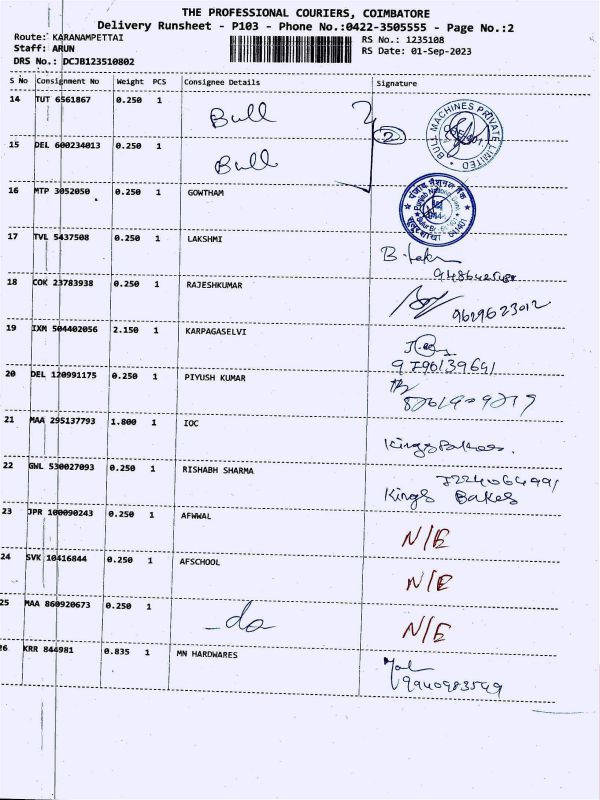 THE PROFESSIONAL COURIERS, COIMBATORE
Delivery Runsheet - P103 - Phone No.:0422-3505555 - Page No.:2
Route: KARANAMPETTAI
RS No.: 1235108
Staff: ARUN
RS Date: 01-Sep-2023
DRS No.: DCJB123510802
S No Consignment No Weight PCS Consignee Details Signature
14 TUT 6561867 0.250 1 Bull
2
BULL MACHINES PRIVATE LIMITED
15 DEL 600234013 0.250 1 Bull
16 MTP 3052050 0.250 1 GOWTHAM
पंजाब नैशनल बैंक
Punjab National Bank
17 TVL 5437508 0.250 1 LAKSHMI
18 COK 23783938 0.250 1 RAJESHKUMAR
9629623012
19 IXM 504402056 2.150 1 KARPAGASELVI
9790139691
20 DEL 120991175 0.250 1 PIYUSH KUMAR
21 MAA 295137793 1.800 1 IOC
Kings Bakes.
22 GWL 530027093 0.250 1 RISHABH SHARMA
Kings Bakes
23 JPR 100090243 0.250 1 AFWWAL N/E
24 SVK 10416844 0.250 1 AFSCHOOL N/E
25 MAA 860920673 0.250 1 -do N/E
26 KRR 844981 0.835 1 MN HARDWARES
9940983549